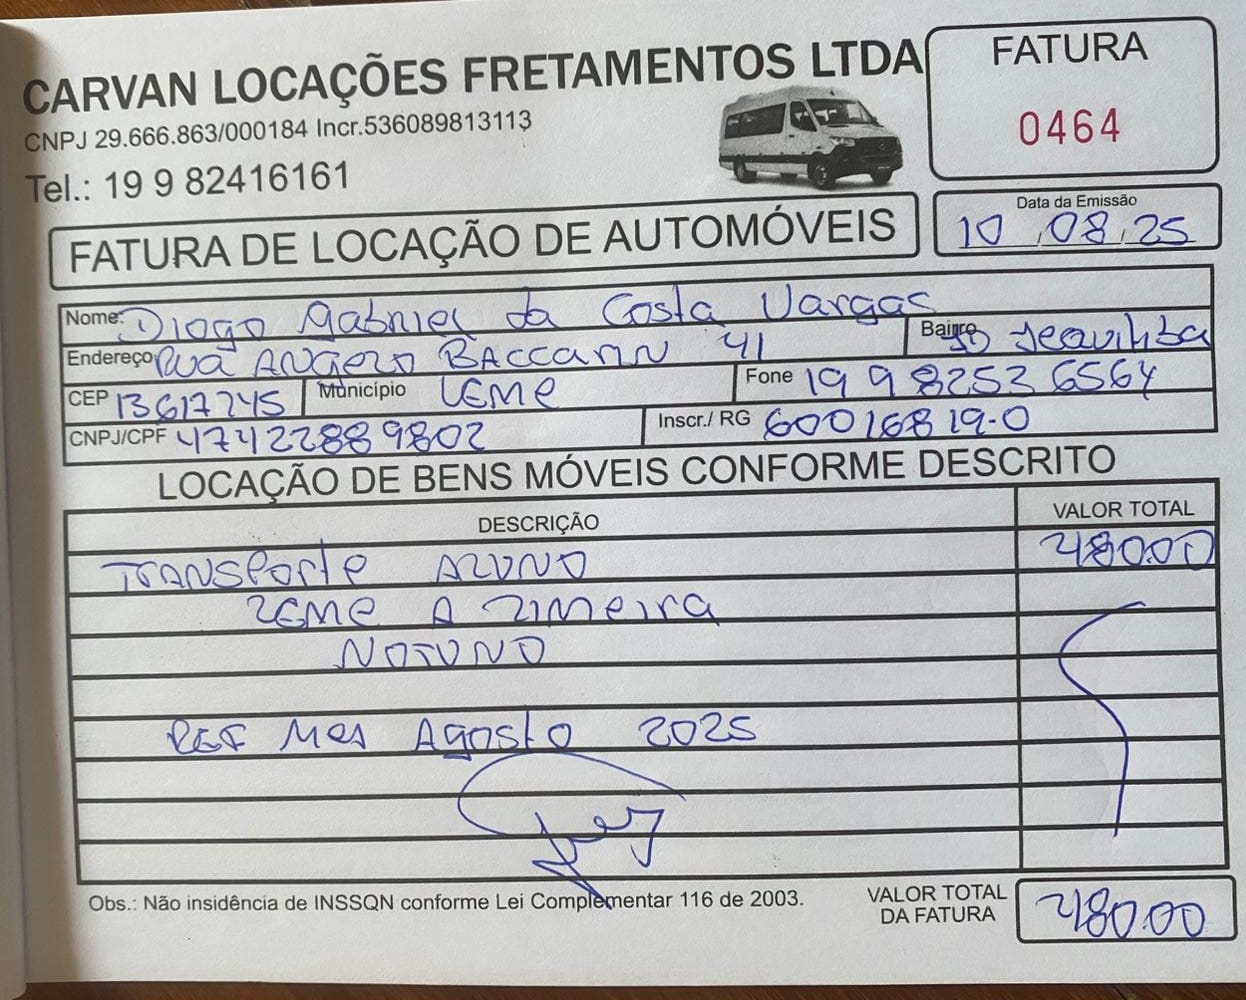 CARVAN LOCAÇÕES FRETAMENTOS LTDA
CNPJ 29.666.863/000184 Incr.536089813113
Tel.: 19 9 82416161
FATURA
0464
Data da Emissão
10 08 25
FATURA DE LOCAÇÃO DE AUTOMÓVEIS
Nome: Diogo Gabriel da Costa Vargas
Endereço Rua Angelo Baccarin 41 Bairro JD
CEP 13617245 Município Leme Fone 19 9 8253 6564
CNPJ/CPF 47422889802 Inscr./ RG 60016819-0
LOCAÇÃO DE BENS MÓVEIS CONFORME DESCRITO
DESCRIÇÃO VALOR TOTAL
Transporte Aluno 480.00
Leme a Limeira
Notuno
Ref Mes Agosto 2025
Obs.: Não insidência de INSSQN conforme Lei Complementar 116 de 2003.
VALOR TOTAL DA FATURA 480.00